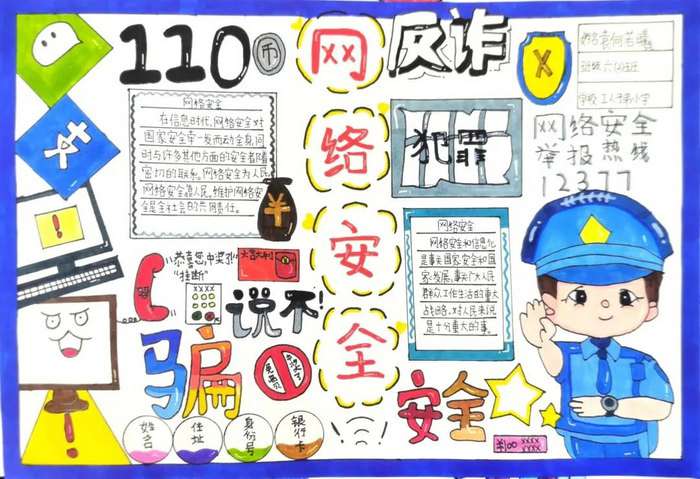 110
币
网
络
安
全
反诈
姓名
班级
学校:工人子弟小学
网络安全
举报热线
12377
友
!
网络安全
在信息时代,网络安全对
国家安全牵一发而动全身,同
时与许多其他方面的安全都有着
密切的联系。网络安全为人民
网络安全靠人民。维护网络安
全是全社会的共同责任。
¥
犯罪
网络安全
网络安全和信息化
是事关国家安全和国
家发展、事关广大人民
群众工作生活的重大
战略、对人民来说
是十分重大的事。
"恭喜您中奖了"
"挂断"
大吉大利
XXXX
说不!
骗
免费
中奖了
!
姓名
住址
身份号
银行卡
安全
¥100 XXXX
XXXX